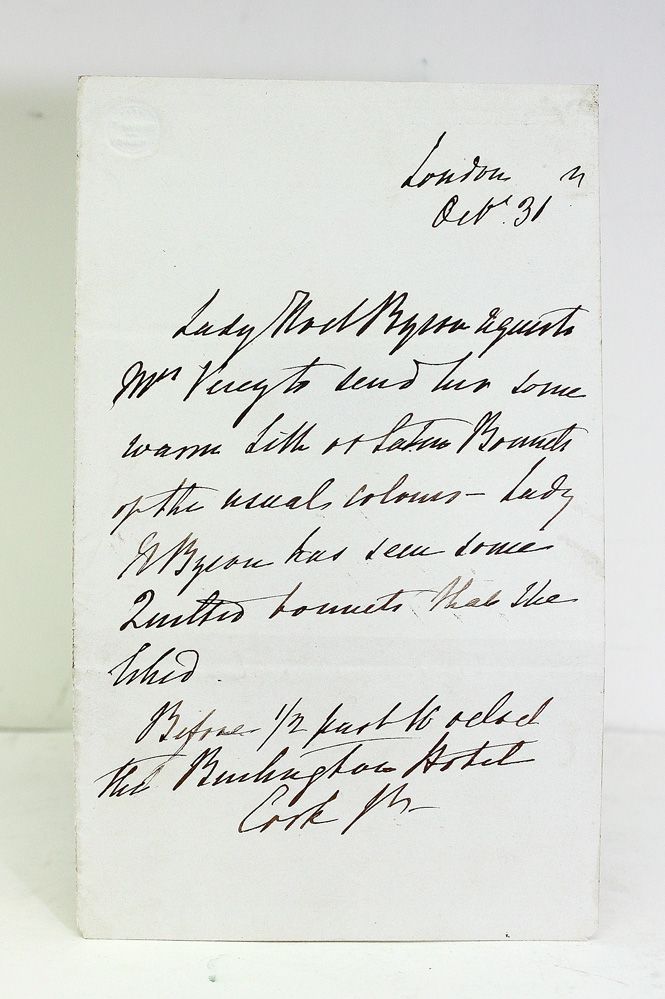 London
Octr. 31
Lady Noel Byron requests
Mrs Verey to send her some
warm Silk or Satin Bonnets
of the usual colours - Lady
N Byron has seen some
Quilted bonnets that she
liked.
Before 1/2 past 10 oclock
the Burlington Hotel
Cork St-